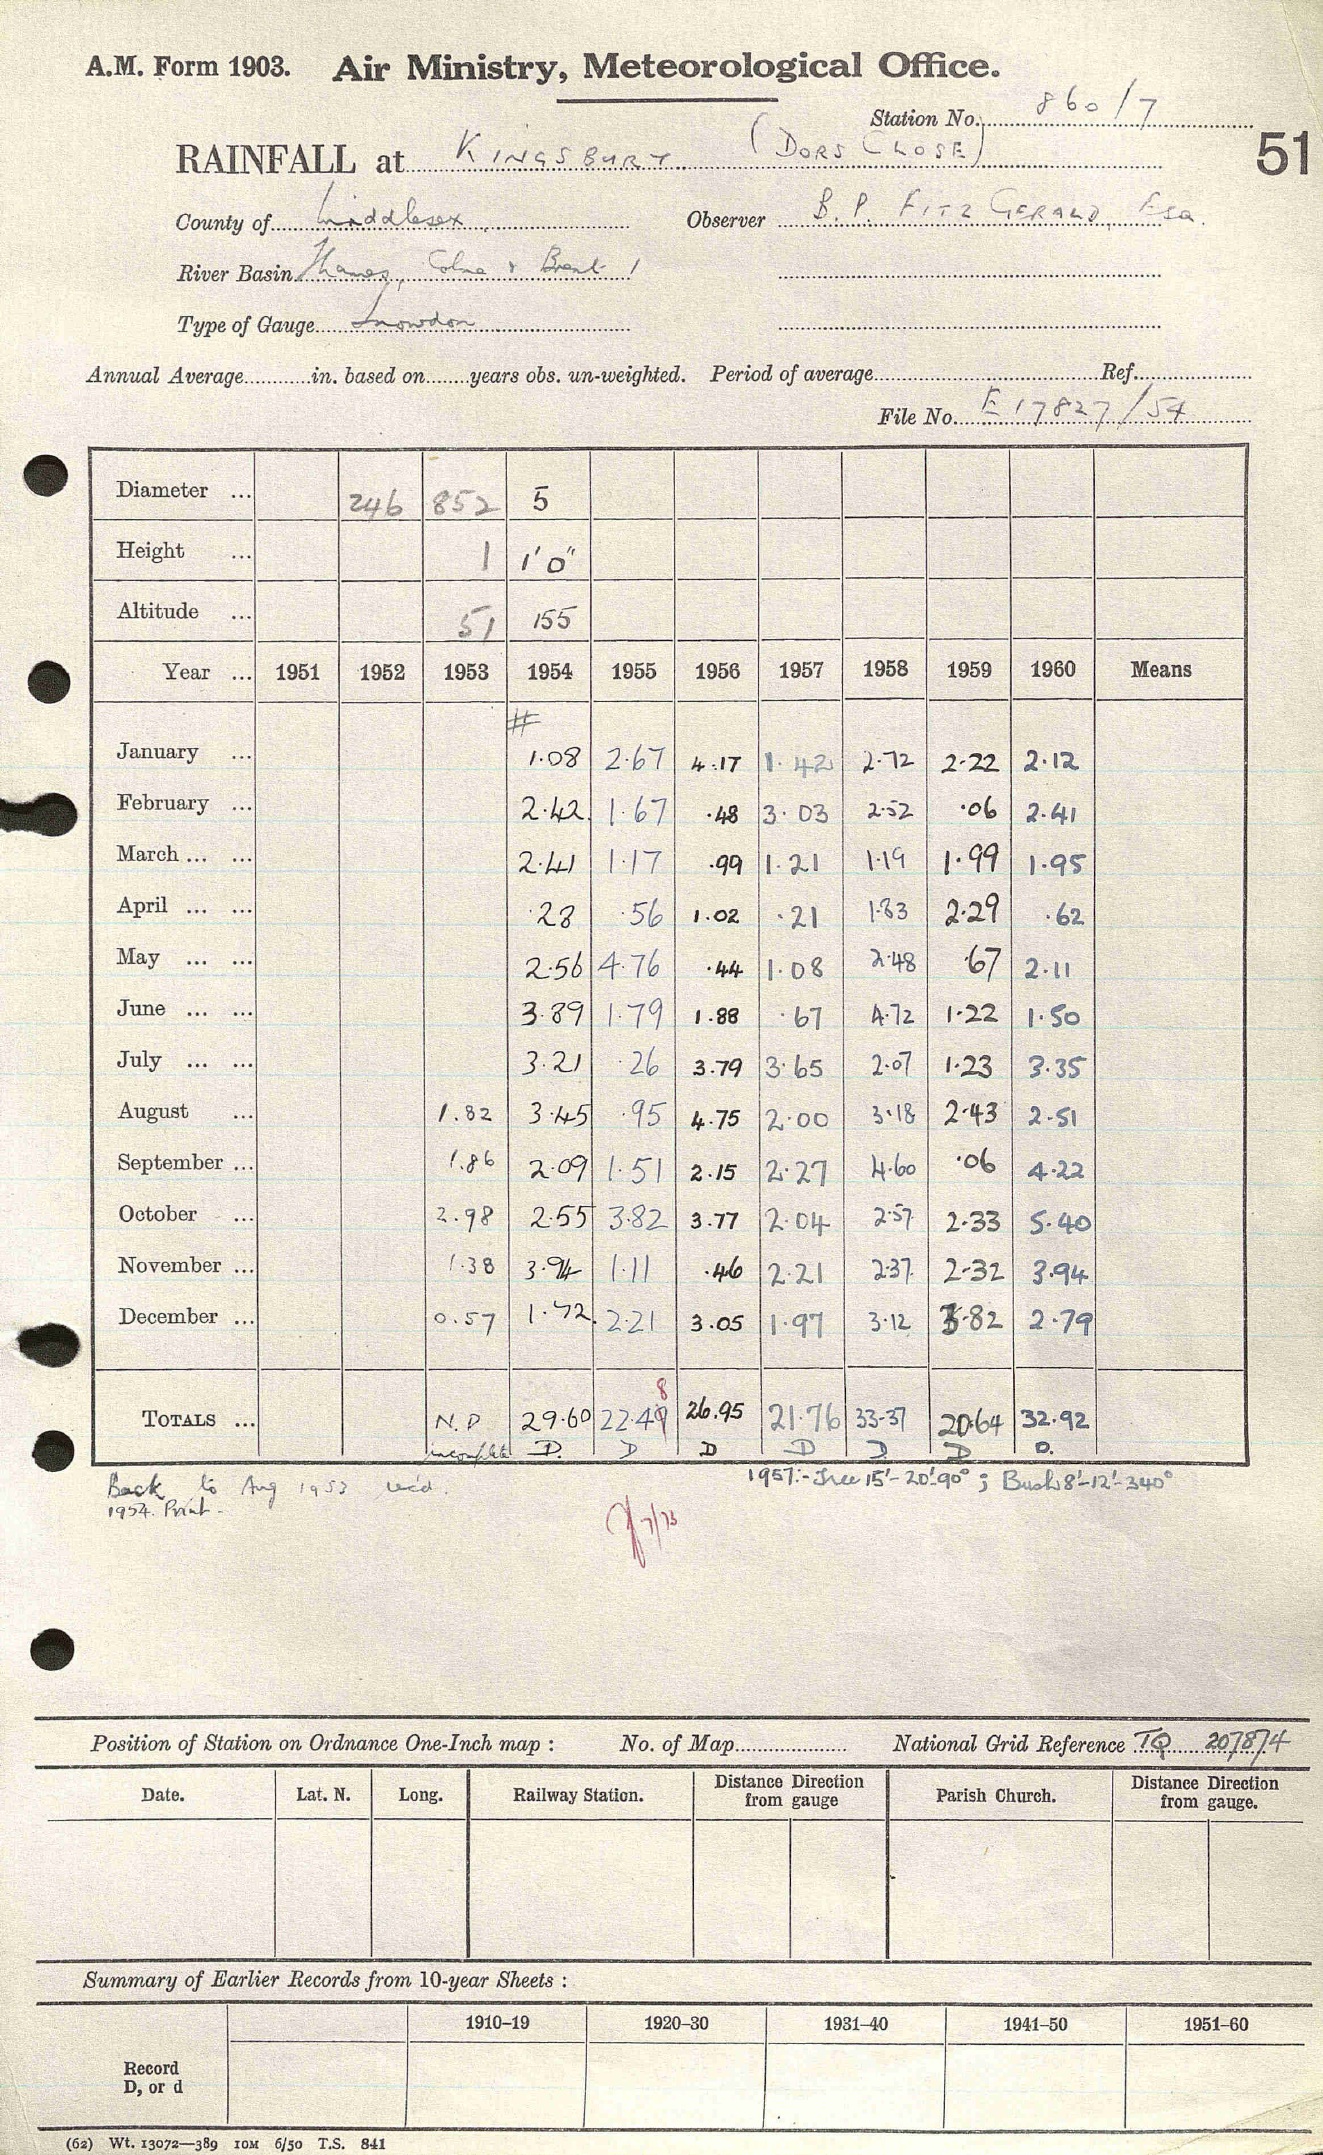 A.M. Form 1903. Air Ministry, Meteorological Office.
Station No. 860/7
RAINFALL at KINGSBURY (DORS CLOSE)
51
County of Middlesex Observer B. P. FITZ GERALD, ESQ.
River Basin Thames, Colne & Brent
Type of Gauge Snowdon
Annual Average in. based on years obs. un-weighted. Period of average Ref.
File No. E 17827/54
Diameter ... 246 852 5
Height ... 1 1'0"
Altitude ... 51 155
Year ... 1951 1952 1953 1954 1955 1956 1957 1958 1959 1960 Means
#
January ... 1.08 2.67 4.17 1.42 2.72 2.22 2.12
February ... 2.42 1.67 .48 3.03 2.52 .06 2.41
March ... ... 2.41 1.17 .99 1.21 1.19 1.99 1.95
April ... ... .28 .56 1.02 .21 1.83 2.29 .62
May ... ... 2.56 4.76 .44 1.08 2.48 .67 2.11
June ... ... 3.89 1.79 1.88 .67 4.72 1.22 1.50
July ... ... 3.21 .26 3.79 3.65 2.07 1.23 3.35
August ... 1.82 3.45 .95 4.75 2.00 3.18 2.43 2.51
September ... 1.86 2.09 1.51 2.15 2.27 4.60 .06 4.22
October ... 2.98 2.55 3.82 3.77 2.04 2.57 2.33 5.40
November ... 1.38 3.94 1.11 .46 2.21 2.37 2.32 3.94
December ... 0.57 1.72 2.21 3.05 1.97 3.12 3.82 2.79
8
TOTALS ... N.P 29.60 22.49 26.95 21.76 33.37 20.64 32.92
incomplete D. D D D D D D.
Back to Aug 1953 rec'd. 1957:- Tree 15'-20'-90° ; Bush 8'-12'-340°
1954. Print.
7/73
Position of Station on Ordnance One-Inch map : No. of Map National Grid Reference TQ 207874
Date. Lat. N. Long. Railway Station. Distance from gauge Direction Parish Church. Distance from gauge. Direction
Summary of Earlier Records from 10-year Sheets :
1910–19 1920–30 1931–40 1941–50 1951–60
Record
D, or d
(62) Wt. 13072—389 10M 6/50 T.S. 841